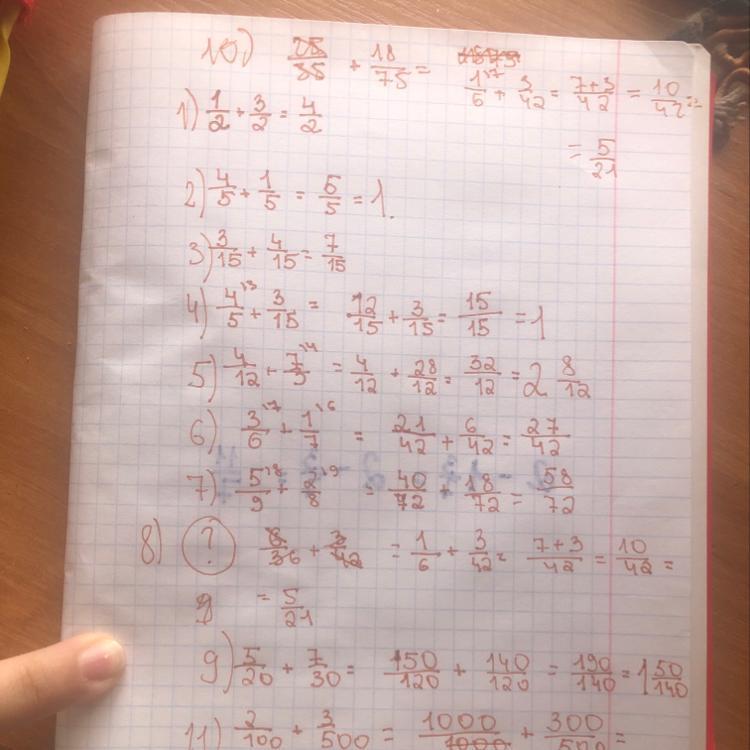 10) 28/35 + 18/75 =
1/6 + 3/42 = 7+3/42 = 10/42 =
= 5/21
1) 1/2 + 3/2 = 4/2
2) 4/5 + 1/5 = 5/5 = 1.
3) 3/15 + 4/15 = 7/15
4) 4/5 + 3/15 = 12/15 + 3/15 = 15/15 = 1
5) 4/12 + 7/3 = 4/12 + 28/12 = 32/12 = 2 8/12
6) 3/6 + 1/7 = 21/42 + 6/42 = 27/42
7) 5/9 + 2/8 = 40/72 + 18/72 = 58/72
8) ? 6/36 + 3/42 = 1/6 + 3/42 = 7+3/42 = 10/42 =
= 5/21
9) 5/20 + 7/30 = 150/120 + 140/120 = 190/140 = 1 50/140
11) 2/100 + 3/500 = 1000/1000 + 300/50 =